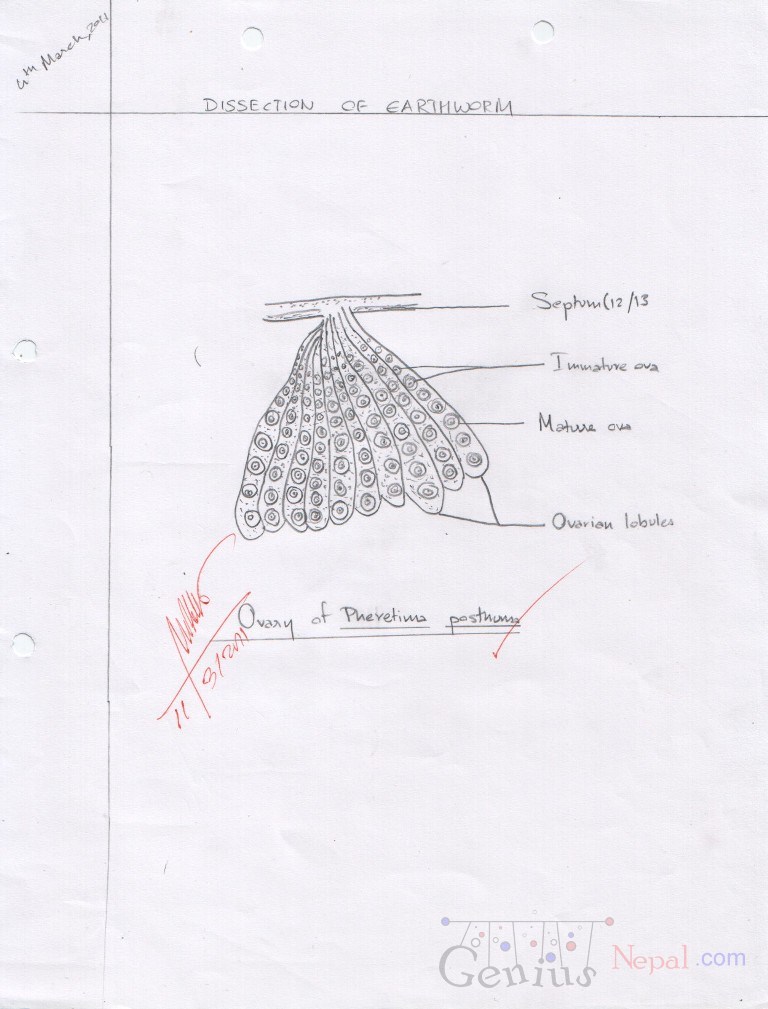 4th March, 2011
DISSECTION OF EARTHWORM
Septum (12/13
Immature ova
Mature ova
Ovarian lobules
Ovary of Pheretima posthuma
11/3/2011
Genius Nepal.com